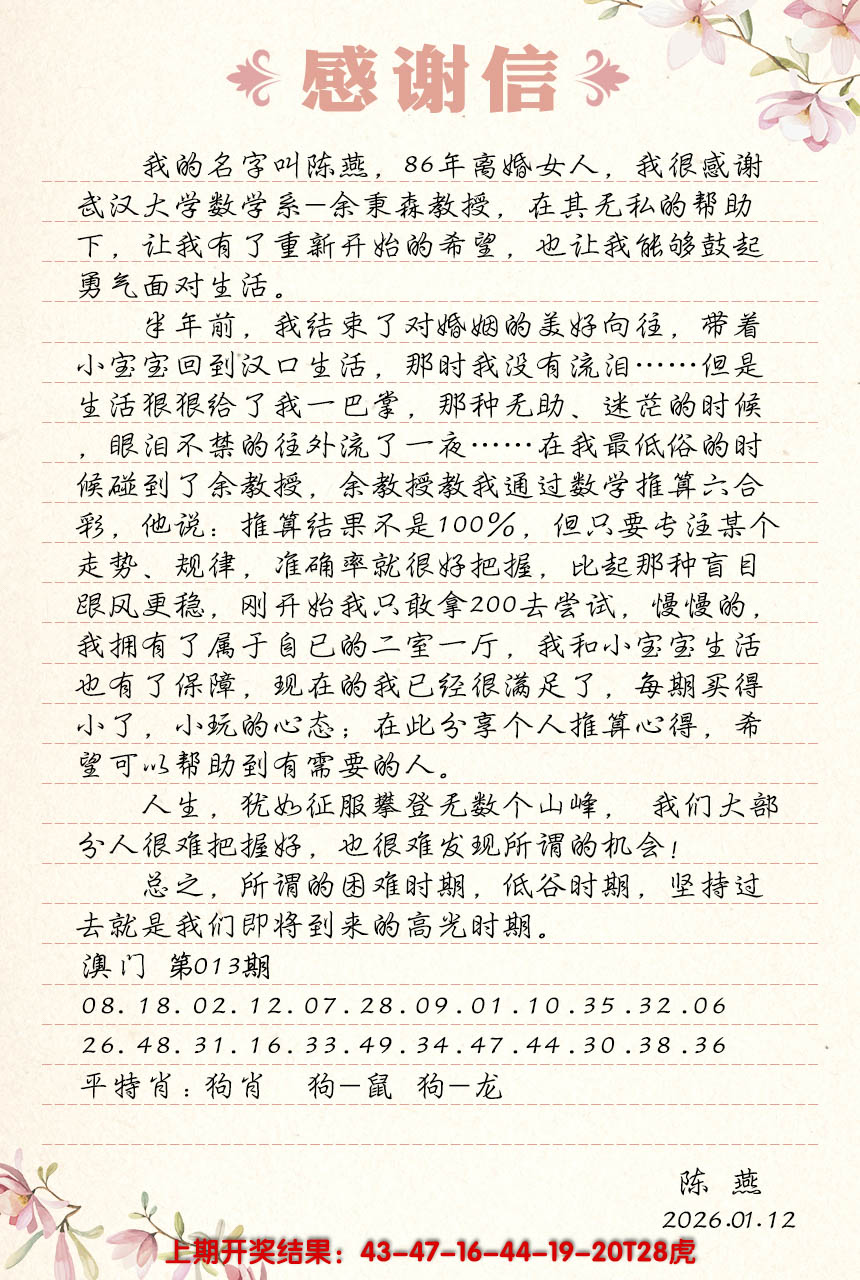 感谢信
我的名字叫陈燕，86年离婚女人，我很感谢
武汉大学数学系—余秉森教授，在其无私的帮助
下，让我有了重新开始的希望，也让我能够鼓起
勇气面对生活。
半年前，我结束了对婚姻的美好向往，带着
小宝宝回到汉口生活，那时我没有流泪……但是
生活狠狠给了我一巴掌，那种无助、迷茫的时候
，眼泪不禁的往外流了一夜……在我最低俗的时
候碰到了余教授，余教授教我通过数学推算六合
彩，他说：推算结果不是100%，但只要专注某个
走势、规律，准确率就很好把握，比起那种盲目
跟风更稳，刚开始我只敢拿200去尝试，慢慢的，
我拥有了属于自已的二室一厅，我和小宝宝生活
也有了保障，现在的我已经很满足了，每期买得
小了，小玩的心态；在此分享个人推算心得，希
望可以帮助到有需要的人。
人生，犹如征服攀登无数个山峰， 我们大部
分人很难把握好，也很难发现所谓的机会！
总之，所谓的困难时期，低谷时期，坚持过
去就是我们即将到来的高光时期。
澳门 第013期
08.18.02.12.07.28.09.01.10.35.32.06
26.48.31.16.33.49.34.47.44.30.38.36
平特肖：狗肖 狗—鼠 狗—龙
陈 燕
2026.01.12
上期开奖结果：43-47-16-44-19-20T28虎